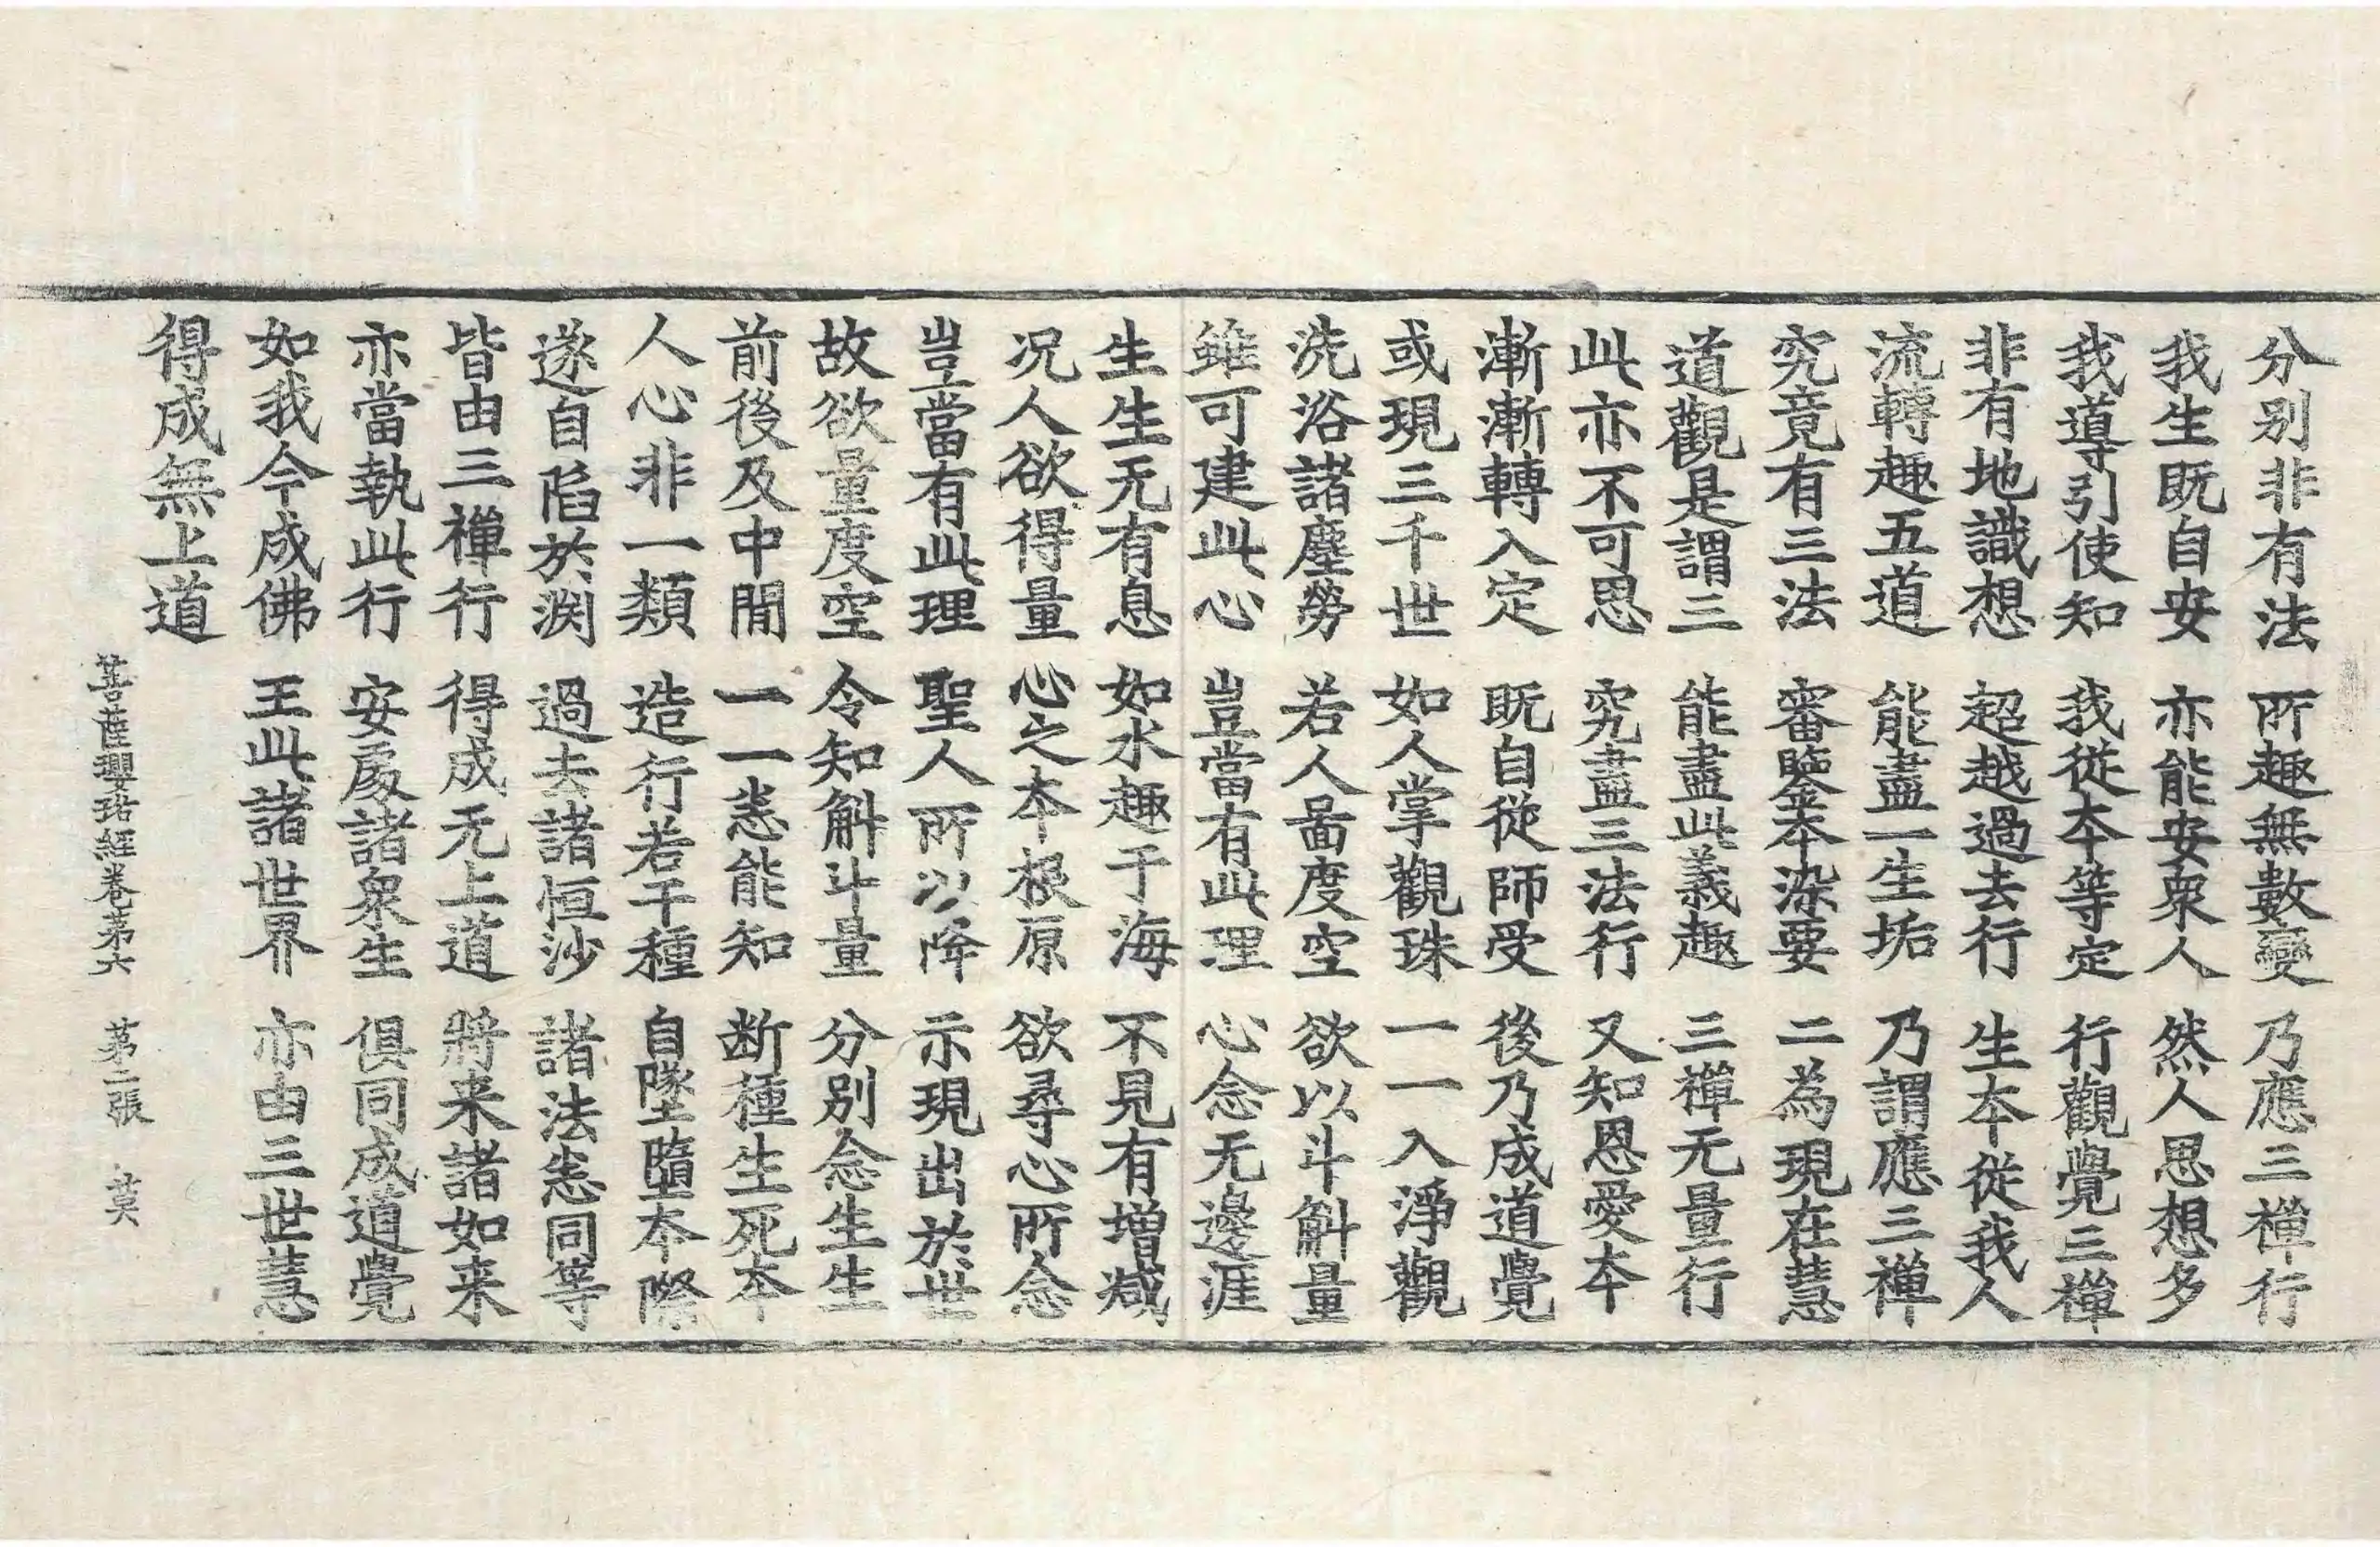 分别非有法　所趣無數變　乃應三禪行
我生既自安　亦能安衆人　然人思想多
我導引使知　我從本等定　行觀覺三禪
非有地識想　超越過去行　生本從我人
流轉趣五道　能盡一生垢　乃謂應三禪
究竟有三法　審鑒本深要　二為現在慧
道觀是謂三　能盡此義趣　三禪无量行
此亦不可思　究盡三法行　又知恩愛本
漸漸轉入定　既自從師受　後乃成道覺
或現三千世　如人掌觀珠　一一入淨觀
洗浴諸塵勞　若人啚度空　欲以斗斛量
雖可建此心　豈當有此理　心念无邊涯
生生无有息　如水趣于海　不見有増减
况人欲得量　心之本根原　欲尋心所念
豈當有此理　聖人所以降　示現出於世
故欲量度空　令知斛斗量　分別念生生
前後及中間　一一悉能知　断種生死本
人心非一類　造行若干種　自墜墮本際
遂自陷於渕　過去諸恒沙　諸法悉同等
皆由三禪行　得成无上道　將来諸如来
亦當執此行　安處諸衆生　俱同成道覺
如我今成佛　王此諸世界　亦由三世慧
得成無上道
菩薩瓔珞經卷第六　第二張　莫